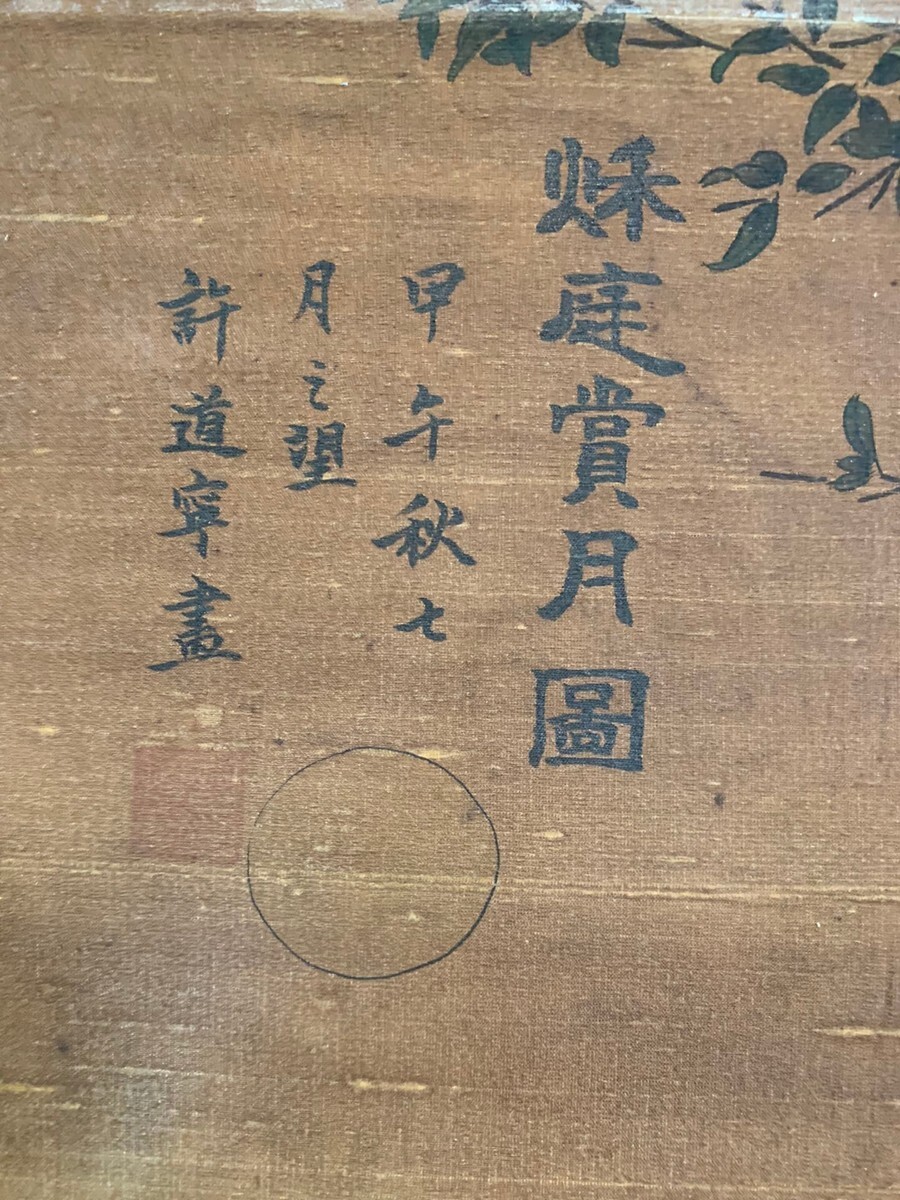 秌庭賞月圖
甲午秋七
月之望
許道寧畫